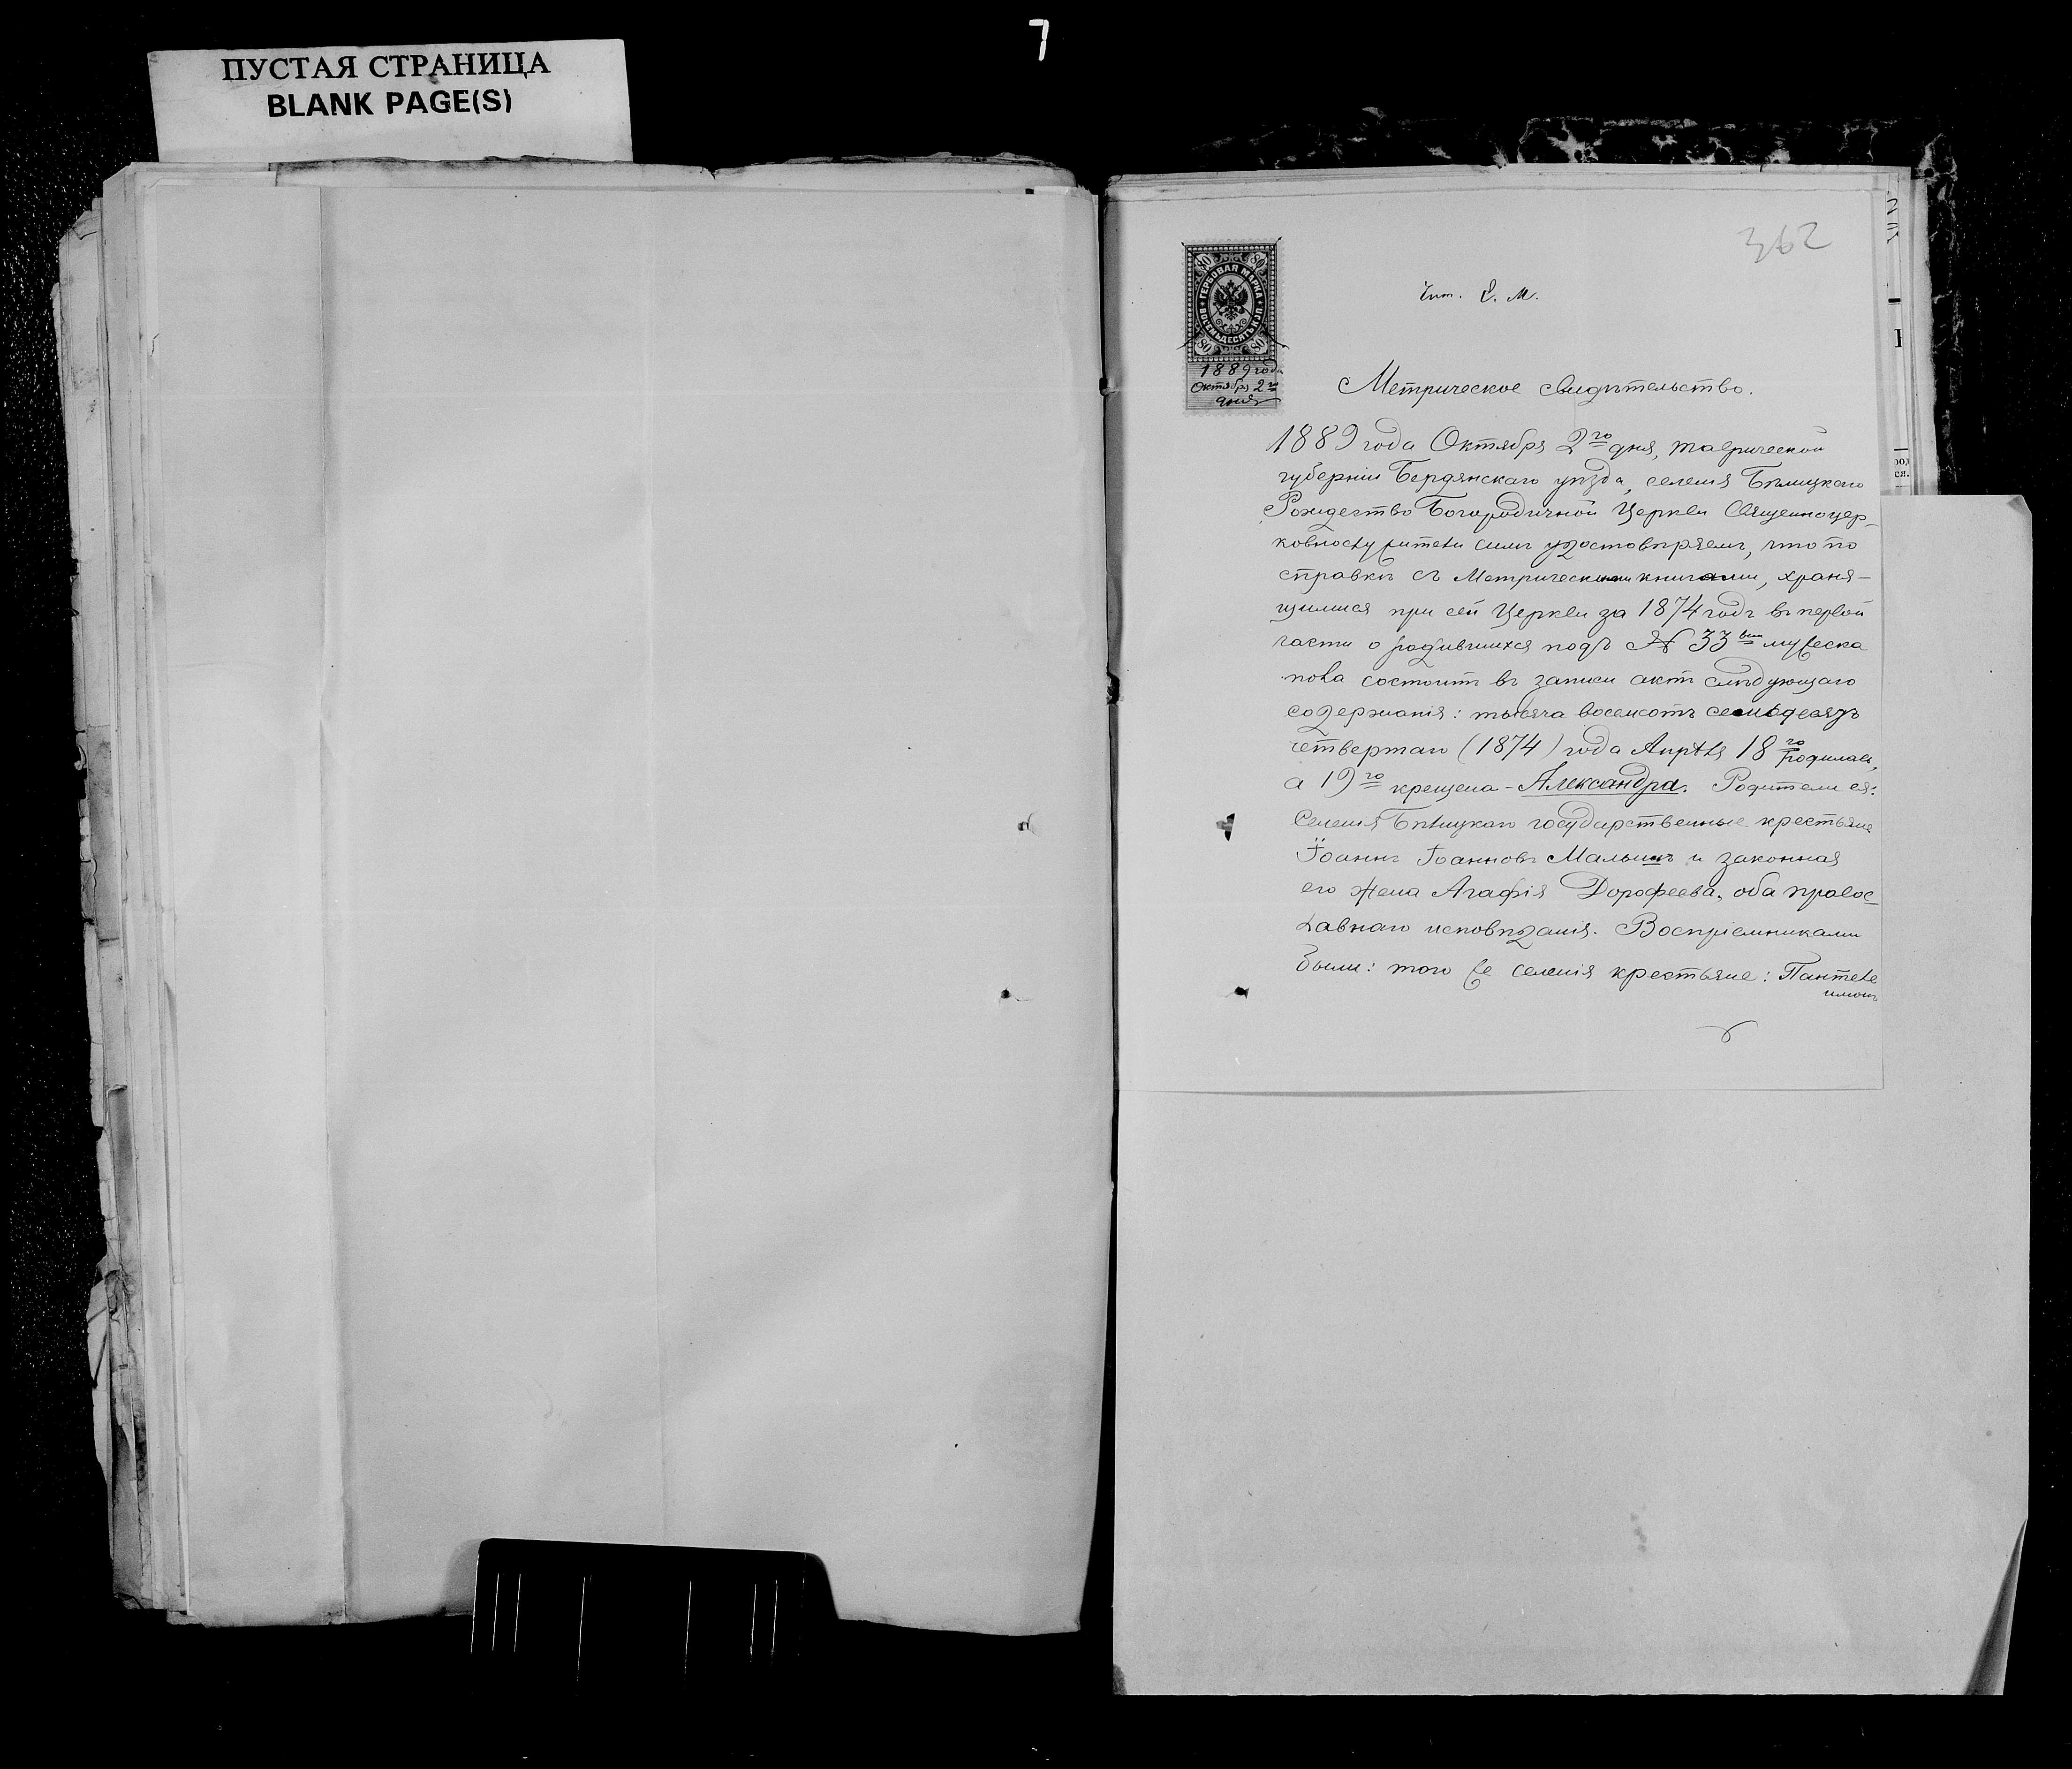 7
ПУСТАЯ СТРАНИЦА
BLANK PAGE(S)
362
ГЕРБОВАЯ МАРКА
ВОСЕМЬДЕСЯТЪ КОП.
80 80
80 80
1889 года
Октября 2го
дня
Чит. С. М.
Метрическое свидѣтельство.
1889 года Октября 2го дня, Таврической
губерніи Бердянскаго уѣзда, селенія Бѣлицкаго
Рождество Богородичной Церкви Священноцер-
ковнослужители симъ удостовѣряемъ, что по
справкѣ съ Метрическими книгами, храня-
щимися при сей Церкви за 1874 годъ въ первой
части о родившихся подъ № 33вмъ мужеска
пола состоитъ въ записи актъ слѣдующаго
содержанія: тысяча восемсотъ семьдесядъ
четвертаго (1874) года Апрѣля 18го родилась,
а 19го крещена - Александра. Родители ея:
Селенія Бѣлицкаго государственные крестьяне
Іоаннъ Іоанновъ Мальшъ и законная
его жена Агафія Дорофеева, оба правос-
лавнаго исповѣданія. Воспріемниками
были: того же селенія крестьяне: Пантеле
имонъ